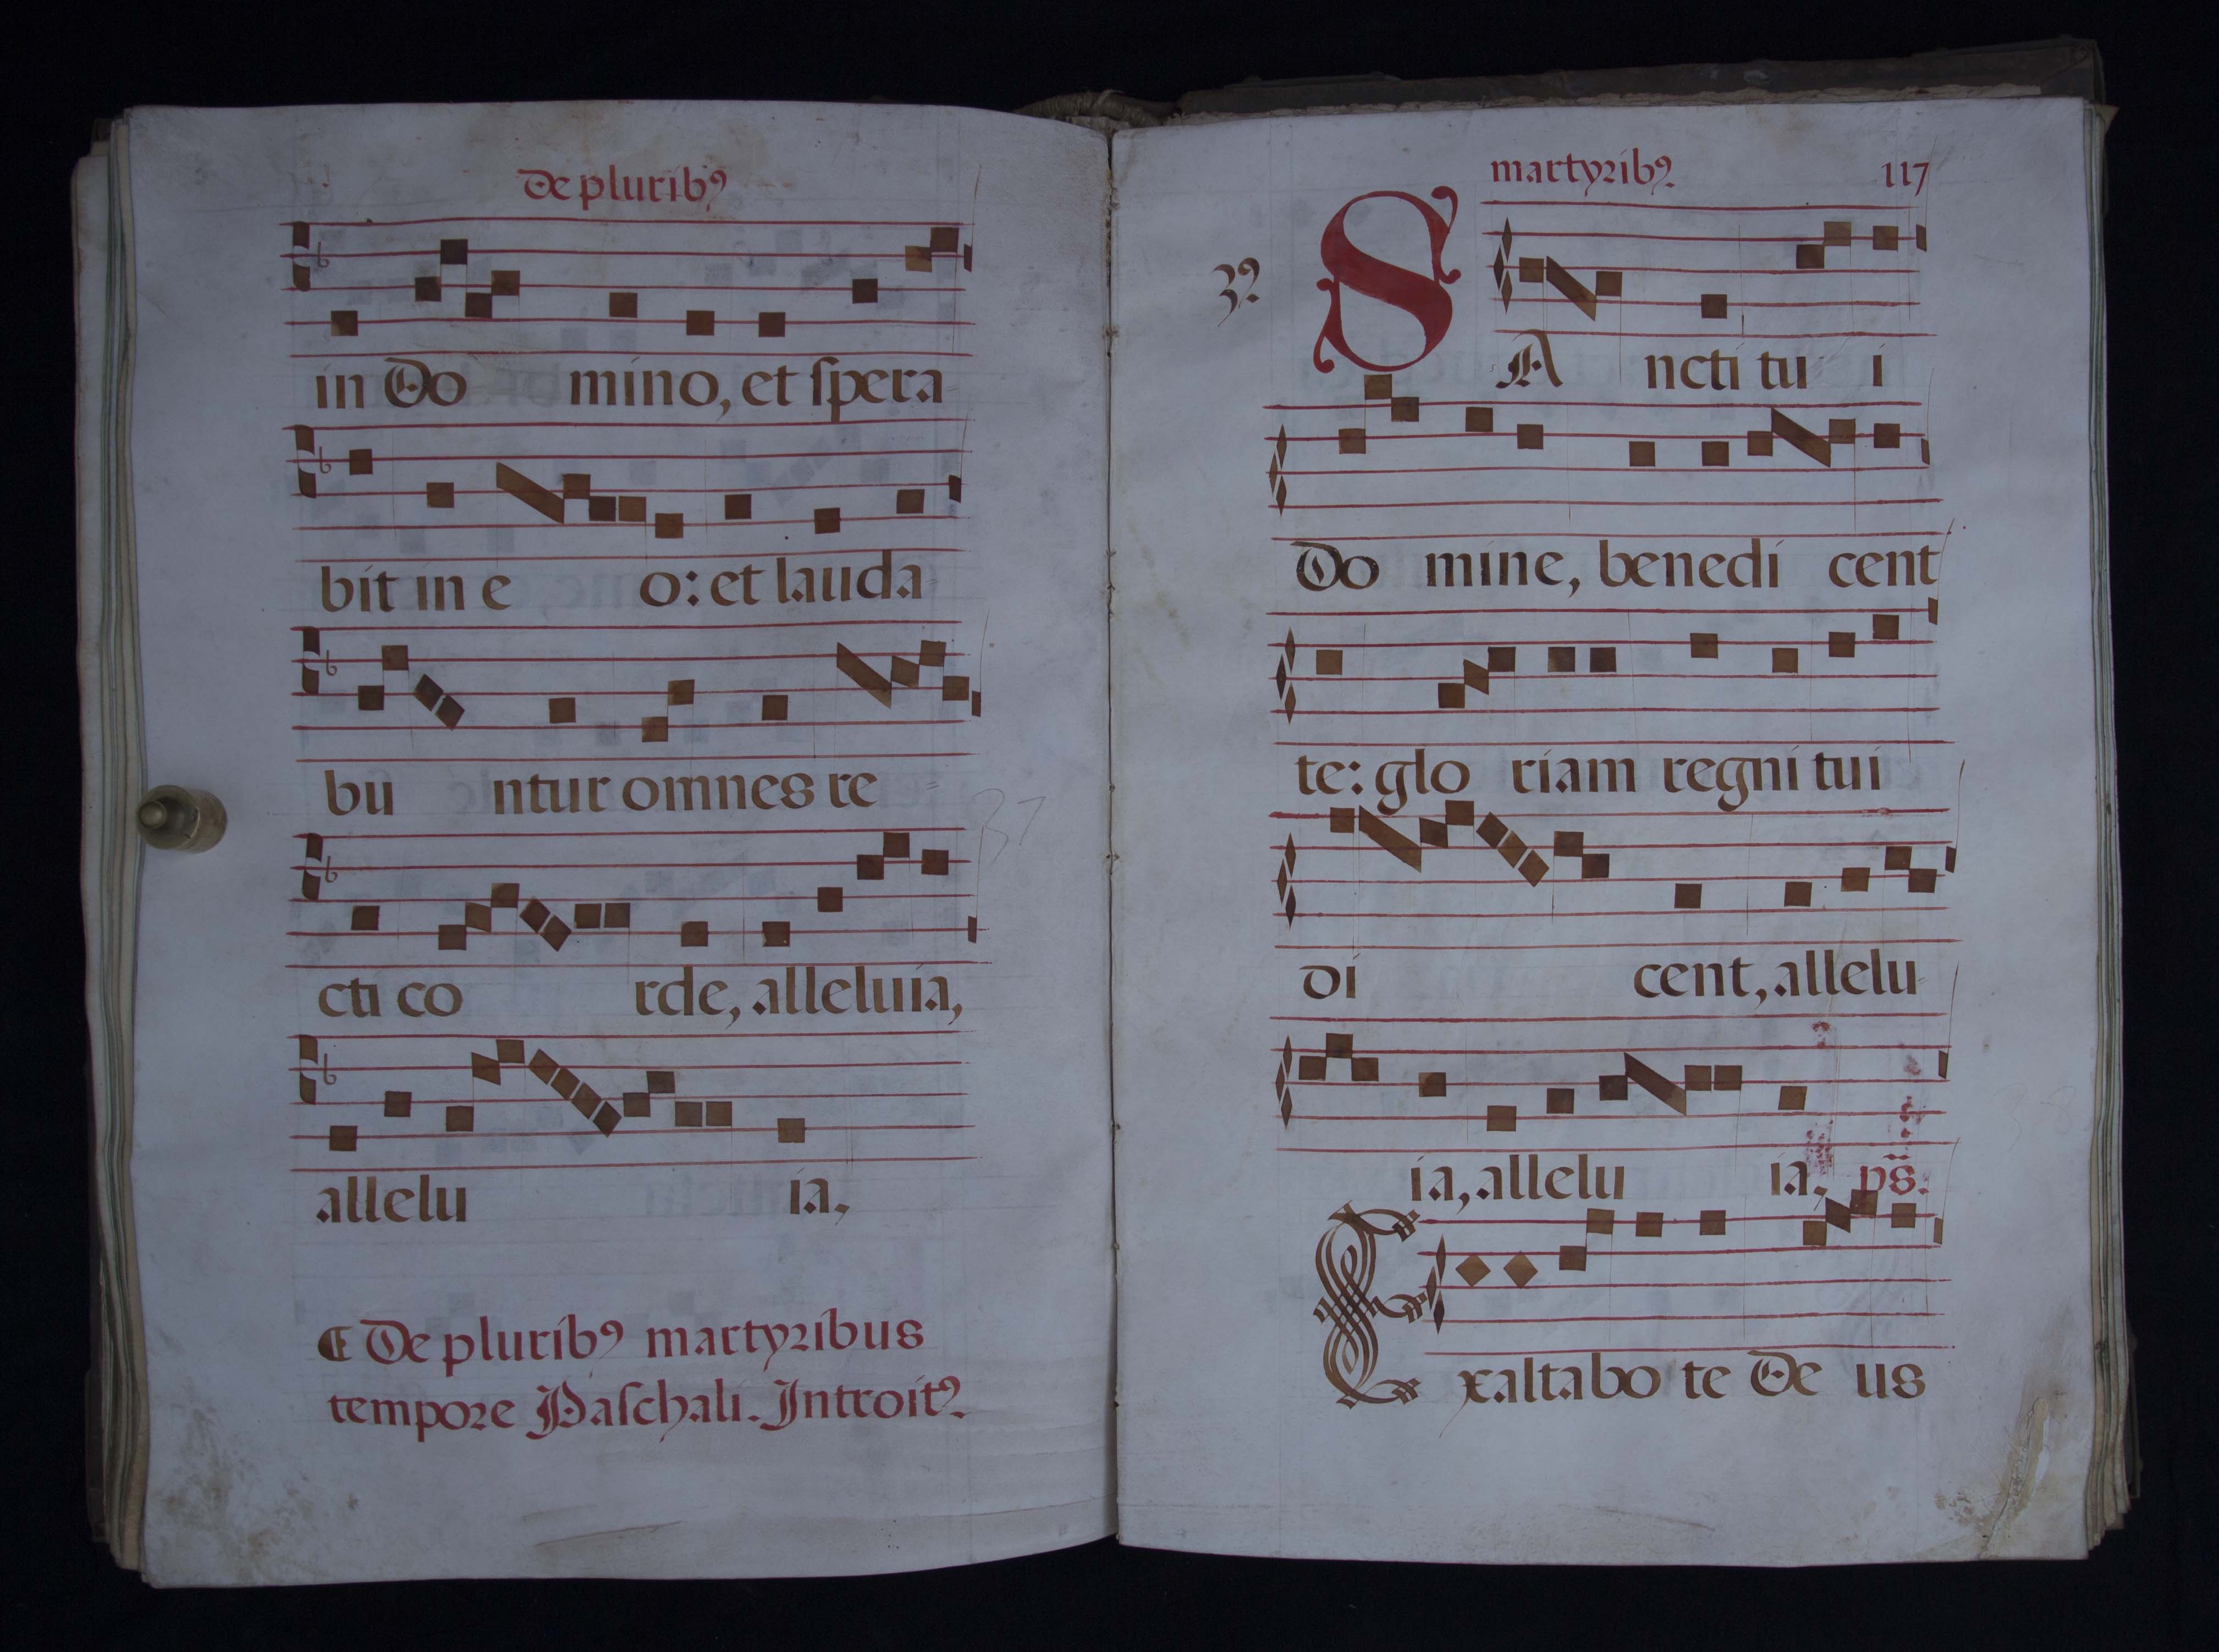 De pluribꝰ
in Do mino, et ſpera
bit in e o: et lauda
bu ntur omnes re
37
cti co rde, alleluia,
allelu ia,
De pluribꝰ martyribus
tempore Paſchali. Introitꝰ.
martyribꝰ. 117
SA ncti tu i
Do mine, benedi cent
te: glo riam regni tui
di cent, allelu
ia, allelu ia, ps.
Exaltabo te De us